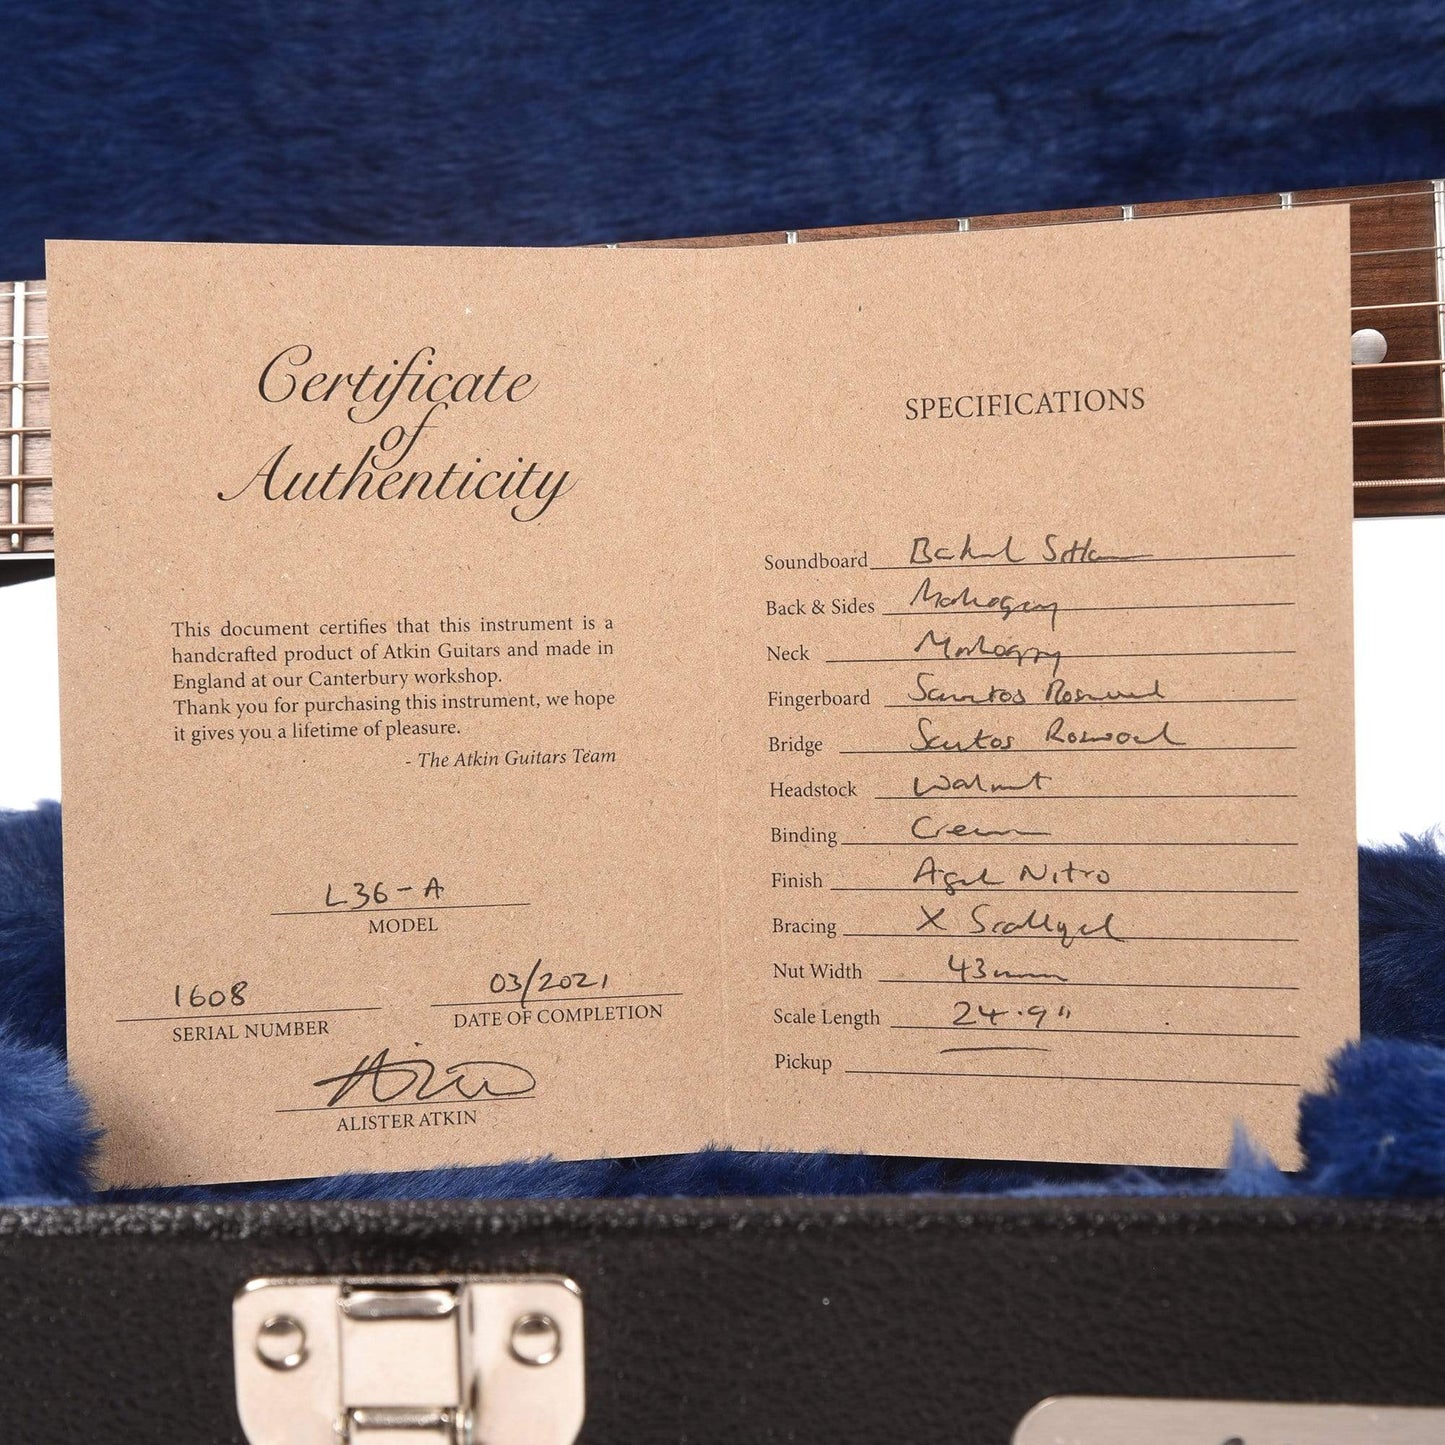 Certificate
of
Authenticity
This document certifies that this instrument is a
handcrafted product of Atkin Guitars and made in
England at our Canterbury workshop.
Thank you for purchasing this instrument, we hope
it gives you a lifetime of pleasure.
- The Atkin Guitars Team
L36-A
MODEL
1608
SERIAL NUMBER
03/2021
DATE OF COMPLETION
ALISTER ATKIN
SPECIFICATIONS
Soundboard Baked Sitka
Back & Sides Mahogany
Neck Mahogany
Fingerboard Santos Rosewood
Bridge Santos Rosewood
Headstock Walnut
Binding Cream
Finish Aged Nitro
Bracing X Scalloped
Nut Width 43mm
Scale Length 24.9"
Pickup —